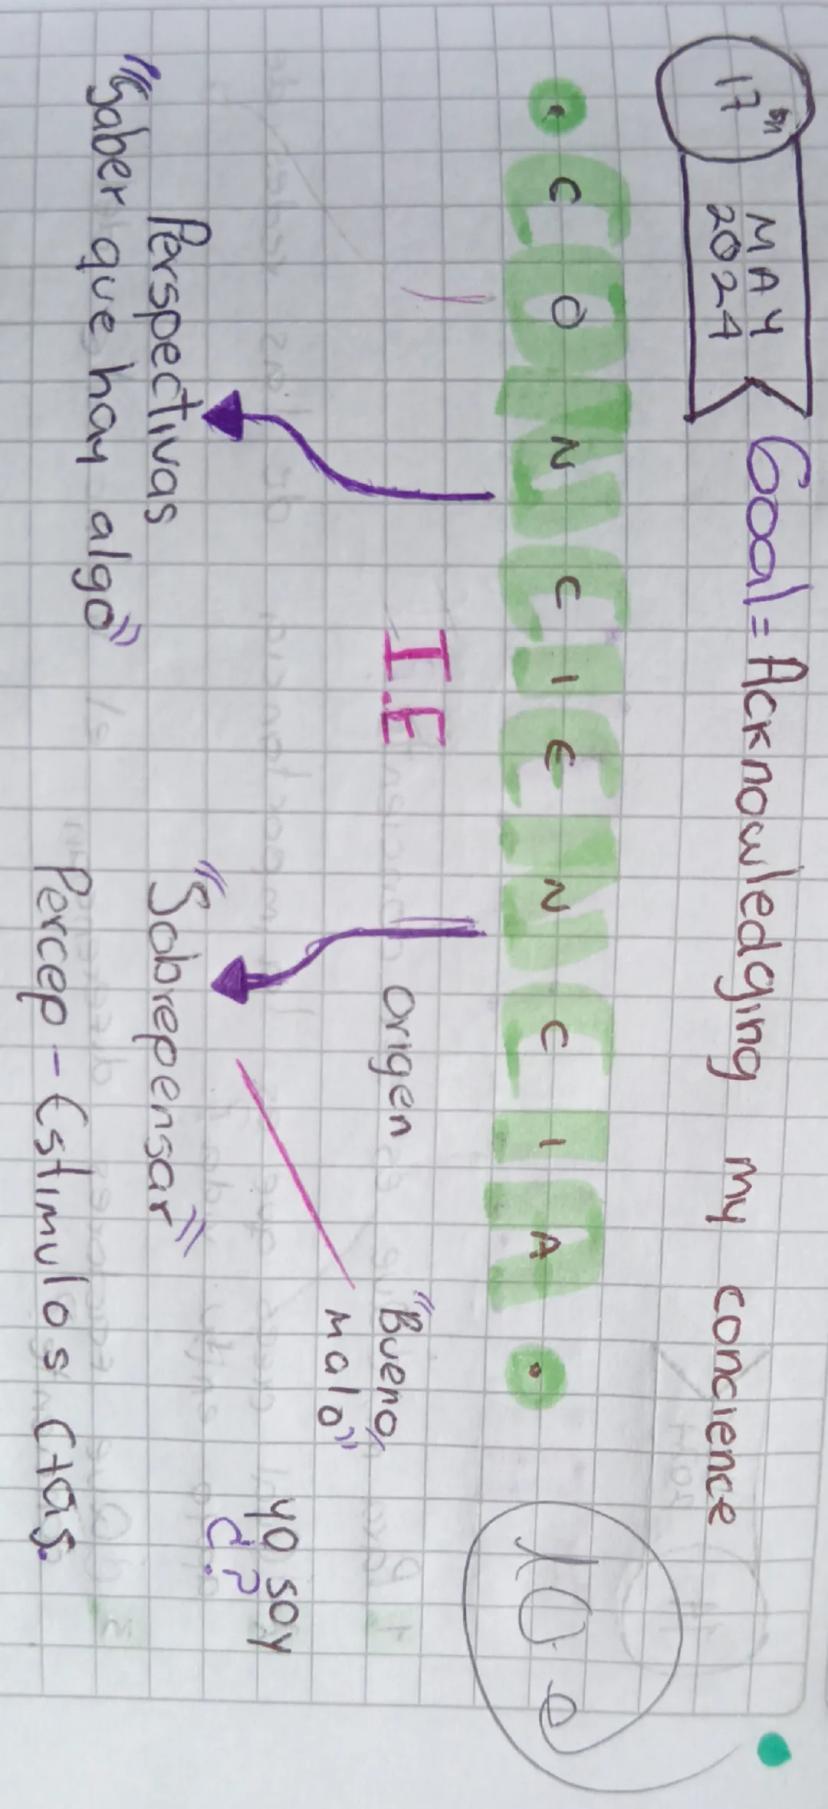 17th MAY 2024
Goal = Acknowledging my concience
CONCIENCIA
10.0
I.E
Origen
"Bueno,
malo"
Perspectivas
"Saber que hay algo"
"Sobrepensar"
yo soy
Percep - Estimulos Ctas.